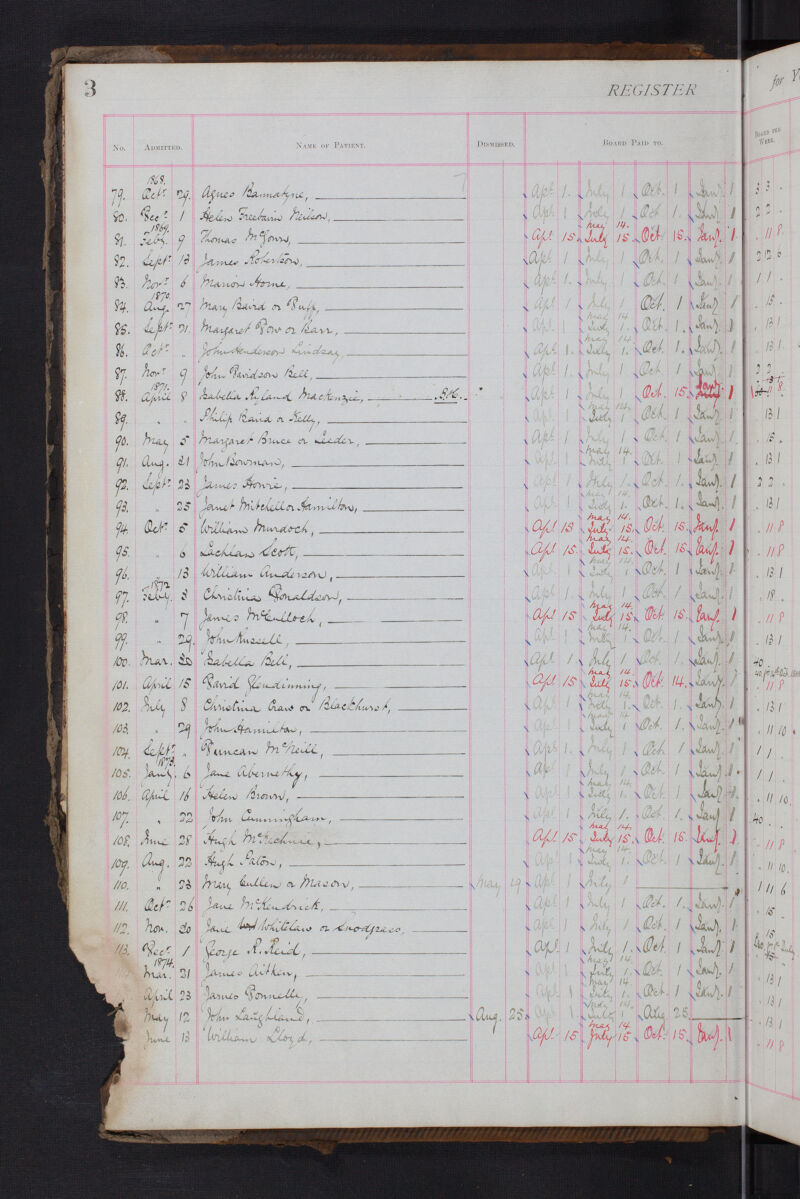 3
REGISTER
for Y
No. ADMITTED. NAME OF PATIENT. DISMISSED. BOARD PAID TO. BOARD PER WEEK.
1868.
79. Octr 29. Agnes Bannatyne, Apl 1. July 1 Oct. 1 Jany 1 3 3 .
80. Decr 1 Helen Freebairn Neilson, Apl 1 July 1 Oct 1 Jany 1 2 2 .
1869. May 14.
81. Feby. 9 Thomas McGown, Apl 15 July 15 Oct 15. Jany. 1 . 11 8
82. Septr 13 James Robertson, Apl 1 July 1 Oct. 1 Jany 1 2 12 6
83. Novr 6 Marion Horne, Apl 1. July 1 Oct. 1 Jany 1 1 1 .
1870.
84. Aug. 27 Mary Baird or Duff, Apl 1 July 1 Oct. 1 Jany 1 . 15 .
May 14
85. Septr 21. Margaret Dow or Barr, Apl. 1 July 1. Oct. 1. Jany. 1 . 13 1
May 14
86. Octr „ John Henderson Lindsay, Apl. 1. July 1. Oct. 1. Jany. 1 . 13 1.
87. Novr 9 John Davidson Bell, Apl 1. July 1 Oct 1 Jany 1 2 2
1871.
88. April 8 Isabella Ryland MacKenzie, Apl 1 July 1 Oct. 15. Jany 1
May 14.
89. „ „ Philip Baird or Kelly, Apl 1 July 1 Oct. 1 Jany 1 . 13 1
90. May 5 Margaret Bruce or Leeder, Apl 1 July 1 Oct. 1 Jany 1. . 15 .
May 14.
91. Aug. 21 John Bowman, Apl. 1 July 1 Oct. 1 Jany 1 . 13 1
92. Septr 23 James Howie, Apl 1 July 1. Oct. 1. Jany. 1 2 2 .
May 14
93. „ 25 Janet Mitchell or Hamilton, Apl 1 July 1 Oct. 1. Jany. 1 . 13 1
May 14.
94. Octr 5 William Murdoch, Apl 15 July 15. Oct. 15 Jany. 1 . 11 8
May 14.
95. „ 6 Lachlan Scott, Apl 15. July 15. Oct. 15 Jany. 1 . 11 8
May 14.
96. „ 13 William Anderson, Apl 1. July 1 Oct. 1 Jany 1 . 13 1
1872
97. Feby. 3 Christina Donaldson, Apl 1. July 1 Oct. 1 Jany. 1 . 18 .
May 14.
98. „ 7 James McCulloch, Apl 15 July 15. Oct 15. Jany. 1 . 11 8
May 14.
99. „ 29. John Russell, Apl 1 July 1 Oct. 1 Jany 1 . 13 1
100. Mar. 30 Isabella Bell, Apl 1 July 1 Oct. 1. Jany. 1 40 . .
May 14.
101. April 15 David Glendinning, Apl 15 July 15 Oct. 14. Jany. 1 . 11 8
May 14
102. July 8 Christina Craw or Blackhurst, Apl 1 July 1 Oct. 1. Jany. 1 . 13 1
May 14
103. „ 29 John Hamilton, Apl 1 July 1 Oct. 1. Jany. 1 . 11 10 .
104. Septr „ Duncan McNeill, Apl 1. July 1 Oct. 1 Jany. 1 1 1 .
1873.
105. Jany. 6 Jane Abernethy, Apl 1 July 1 Oct. 1 Jany. 1 1 1 .
May 14.
106. April 16 Helen Brown, Apl 1 July 1. Oct. 1 Jany 1 . 11 10.
107. „ 22 John Cunningham, Apl 1 July 1. Oct. 1. Jany 1 40 . .
May 14.
108. June 28 Hugh, Apl 15 July 15. Oct. 15. Jany. 1 . 11 8
May 14.
109. Aug. 22 Hugh Paton, Apl 1 July 1. Oct. 1 Jany. 1 . 11 10.
110. „ 23 Mary Cullen or Mason, May 19 Apl 1 July 1 1 11 6
111. Octr 26 Jane McKendrick, Apl 1 July 1 Oct. 1. Jany. 1 . 15 .
112. Nov. 20 Jane Whitelaw or Snodgrass. Apl 1 July 1 Oct. 1 Jany. 1 . 15
113. Decr 1 George R. Reid, Apl. 1 July 1. Oct 1 Jany. 1
1874. May 14.
Mar. 31 James Aitken, Apl 1 July 1. Oct. 1 Jany. 1 . 13 1
May 14
April 23 James Donnelly, Apl 1 July 1. Oct. 1 Jany. 1 . 13 1
May 12 John Laughland, Aug. 25. Apl 1. July 1 Aug 25. . 13 1
May 14
June 13 William Lloyd, Apl 15 July 15. Oct. 15. Jany. 1 . 11 8